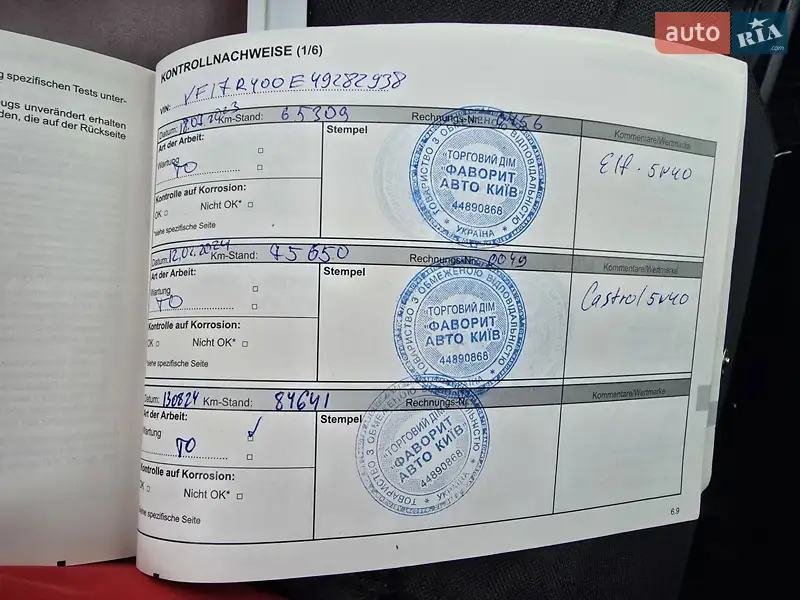 g spezifischen Tests unter-
eugs unverändert erhalten
den, die auf der Rückseite
auto RIA .com
KONTROLLNACHWEISE (1/6)
VIN: VF17R400E49282938
Datum: Km-Stand: 65309 Rechnungs-Nr.
Art der Arbeit: Stempel Kommentare/Wertmarke
Wartung
ТО
Elf - 5w40
Kontrolle auf Korrosion:
OK Nicht OK*
*siehe spezifische Seite
ТОВАРИСТВО З ОБМЕЖЕНОЮ ВІДПОВІДАЛЬНІСТЮ
"ТОРГОВИЙ ДІМ
"ФАВОРИТ
АВТО КИЇВ"
44890868
* УКРАЇНА *
Datum: 12.02.2024 Km-Stand: 75650 Rechnungs-Nr. 0049
Art der Arbeit: Stempel Kommentare/Wertmarke
Wartung
ТО
Castrol 5w40
Kontrolle auf Korrosion:
OK Nicht OK*
*siehe spezifische Seite
ТОВАРИСТВО З ОБМЕЖЕНОЮ ВІДПОВІДАЛЬНІСТЮ
"ТОРГОВИЙ ДІМ
"ФАВОРИТ
АВТО КИЇВ"
44890868
Datum: 130824 Km-Stand: 84641 Rechnungs-Nr.
Art der Arbeit: Stempel Kommentare/Wertmarke
Wartung
ТО
Kontrolle auf Korrosion:
OK Nicht OK*
*siehe spezifische Seite
ТОВАРИСТВО З ОБМЕЖЕНОЮ ВІДПОВІДАЛЬНІСТЮ
"ТОРГОВИЙ ДІМ
"ФАВОРИТ
АВТО КИЇВ"
44890868
* УКРАЇНА *
6.9